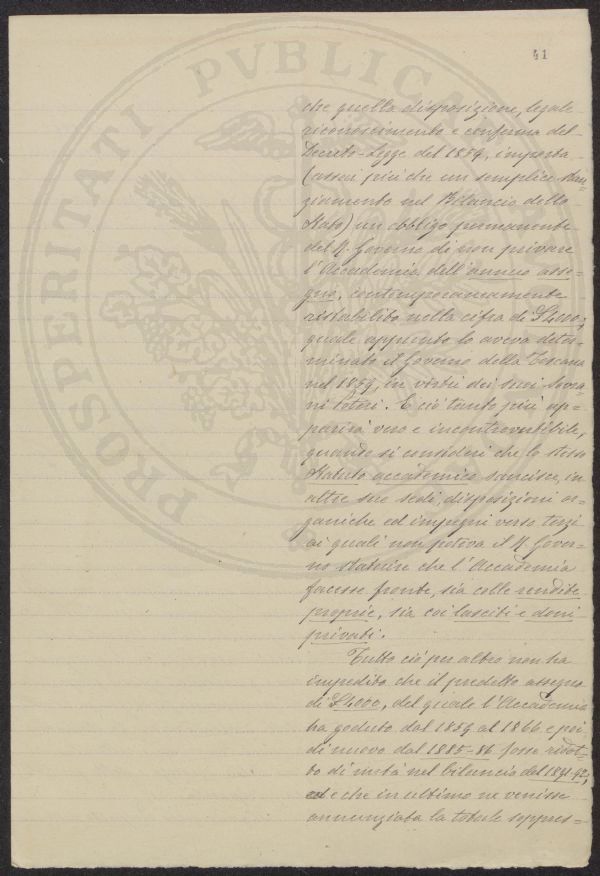 41
PROSPERITATI PVBLICAE
che quella disposizione, legale
riconoscimento e conferma del
Decreto-Legge del 1859, importa
(assai più che un semplice stan=
ziamento nel Bilancio dello
Stato) un obbligo permanente
del R. Governo di non privare
l'Accademia dell'annuo asse=
gno, contemporaneamente
ristabilito nella cifra di £4000,
quale appunto lo aveva deter=
minato il Governo della Toscana
nel 1859, in virtù dei suoi sovra=
ni poteri. E ciò tanto più ap=
parirà vero e incontrovertibile,
quando si consideri che lo stesso
Statuto accademico sancisce, in
altre sue sedi, disposizioni or=
ganiche ed impegni verso terzi
ai quali non poteva il R. Gover=
no statuire che l'Accademia
facesse fronte, sia colle rendite
proprie, sia coi lasciti e doni
privati.
Tutto ciò per altro non ha
impedito che il predetto assegno
di £4000, del quale l'Accademia
ha goduto dal 1859 al 1866 e poi
di nuovo dal 1885-86 fosse ridot=
to di metà nel bilancio del 1891-92,
e che in ultimo ne venisse
annunziata la totale soppres=